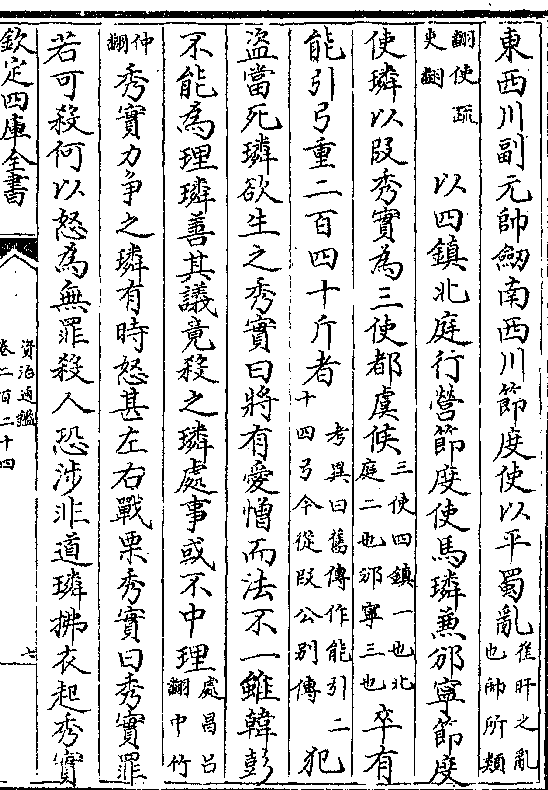 東西川副元帥劒南西川節度使以平蜀亂崔旰之亂也帥所類
翻使疏吏翻 以四鎮北庭行營節度使馬璘兼邠寧節度
使璘以段秀實為三使都虞候三使四鎮一也北庭二也邠寧三也卒有
能引弓重二百四十斤者考異曰舊傳作能引二十四弓今從段公别傳犯
盜當死璘欲生之秀實曰將有愛憎而法不一雖韓彭
不能為理璘善其議竟殺之璘處事或不中理處昌呂翻中竹
仲翻秀實力爭之璘有時怒甚左右戰栗秀實曰秀實罪
若可殺何以怒為無罪殺人恐涉非道璘拂衣起秀實
欽定四庫全書
資治通鑑
卷二百二十四
七